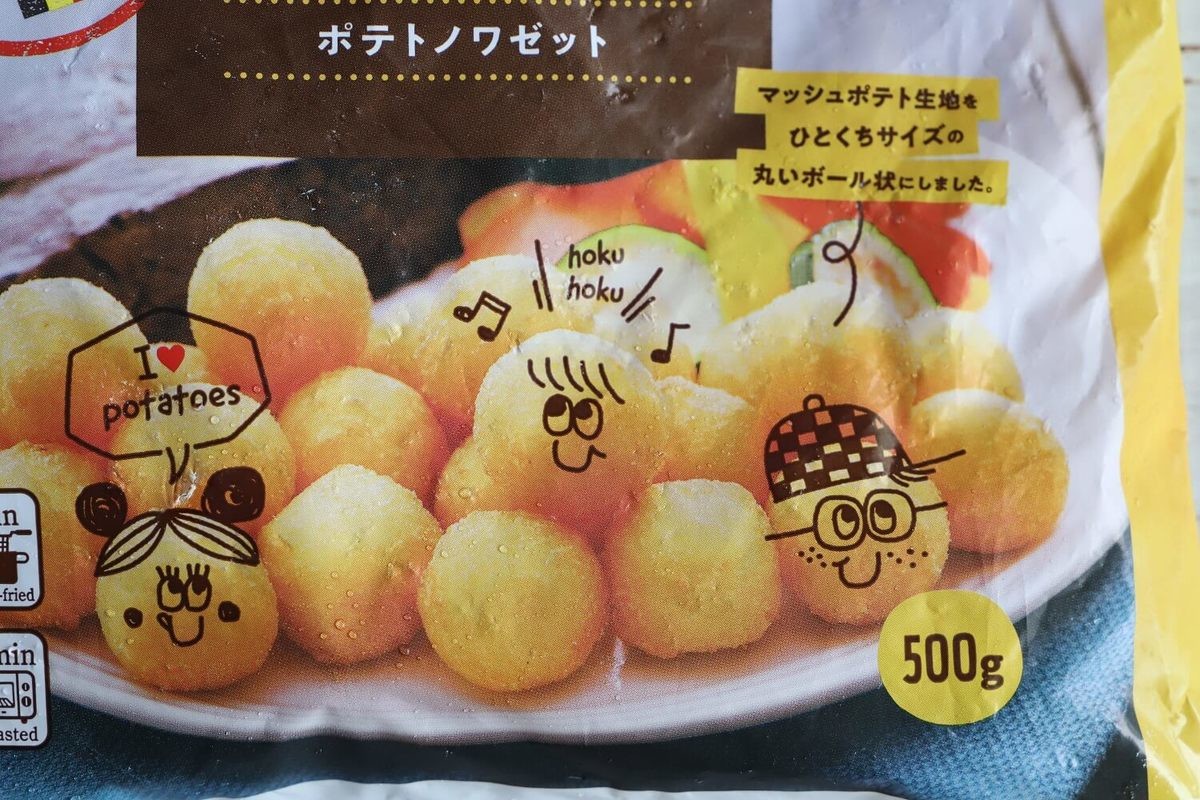 ポテトノワゼット
マッシュポテト生地を
ひとくちサイズの
丸いボール状にしました。
hoku
hoku
I ♥
potatoes
500g